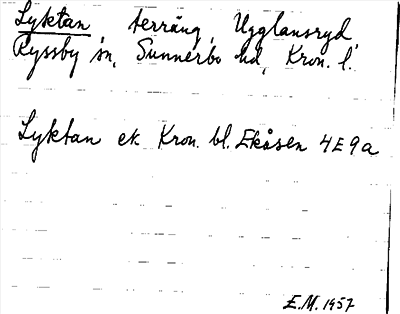 Lyktan terräng, Ugglansryd,
Ryssby sn, Sunnerbo hd, Kron. l.
Lyktan ek. Kron. bl. Ekåsen 4E9a
E.M. 1957